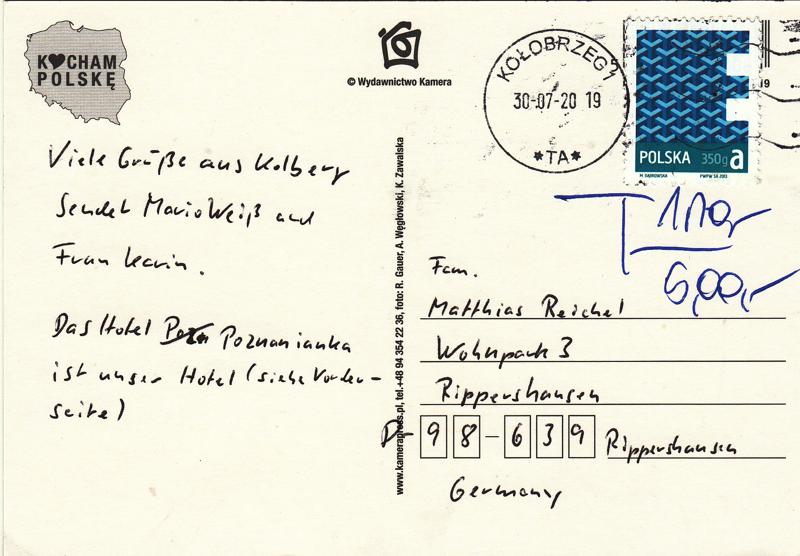 K♥CHAM
POLSKĘ
© Wydawnictwo Kamera
KOŁOBRZEG 1
30-07-20 19
*TA*
POLSKA 350g a
M. DĄBROWSKA PWPW SA 2013
19
Viele Grüße aus Kolberg
sendet Mario Weiß und
Frau Karin.
Das Hotel Pozn Poznanianka
ist unser Hotel (siehe Vorder-
seite)
www.kamerapress.pl, tel.+48 94 354 22 36, foto: R. Gauer, A. Węgłowski, K. Zawalska
T
6,00,-
Fam.
Matthias Reichel
Wohnpark 3
Rippershausen
D-98-639 Rippershausen
Germany